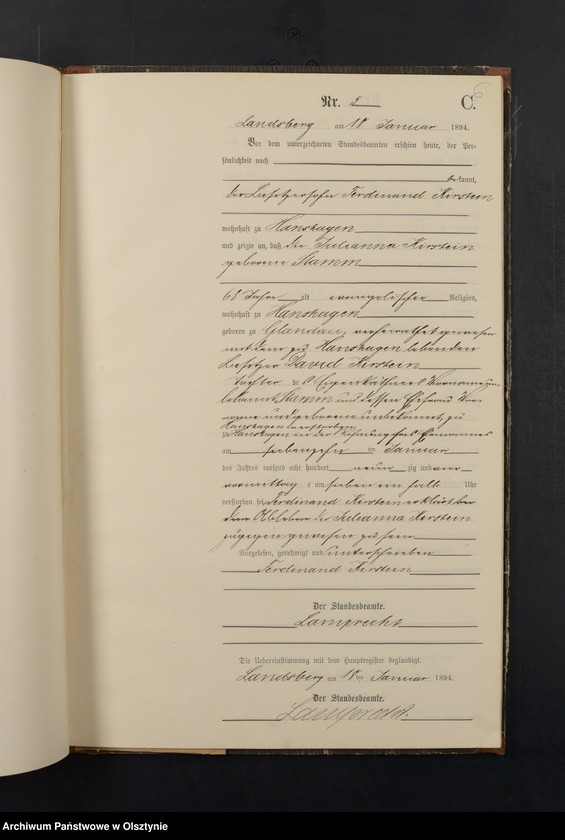 Nr. 5 C.
Landsberg am 18 Januar 1894.
Vor dem unterzeichneten Standesbeamten erschien heute, der Per-
sönlichkeit nach
bekannt,
der Besitzersohn Ferdinand Kirstein
wohnhaft zu Hanshagen
und zeigte an, daß die Julianna Kirstein
geborene Stamm
68 Jahre alt evangelischer Religion,
wohnhaft zu Hanshagen
geboren zu Glandau, verheirathet gewesen
mit dem zu Hanshagen lebenden
Besitzer David Kirstein
Tochter des Eigenkäthners Vorname un-
bekannt Stamm und dessen Ehefrau Vor-
name und geborene unbekannt, zu
Hanshagen verstorben
zu Hanshagen in der Wohnung ihres Ehemannes
am siebenzehn ten Januar
des Jahres tausend acht hundert neun zig und vier
vormittag s um sieben ein halb Uhr
verstorben sei, Ferdinand Kirstein erklärt bei
dem Ableben der Julianna Kirstein
zugegen gewesen zu sein
Vorgelesen, genehmigt und unterschrieben
Ferdinand Kirstein
Der Standesbeamte.
Lamprecht
Die Uebereinstimmung mit dem Hauptregister beglaubigt.
Landsberg am 18ten Januar 1894.
Der Standesbeamte.
Lamprecht.
Archiwum Państwowe w Olsztynie